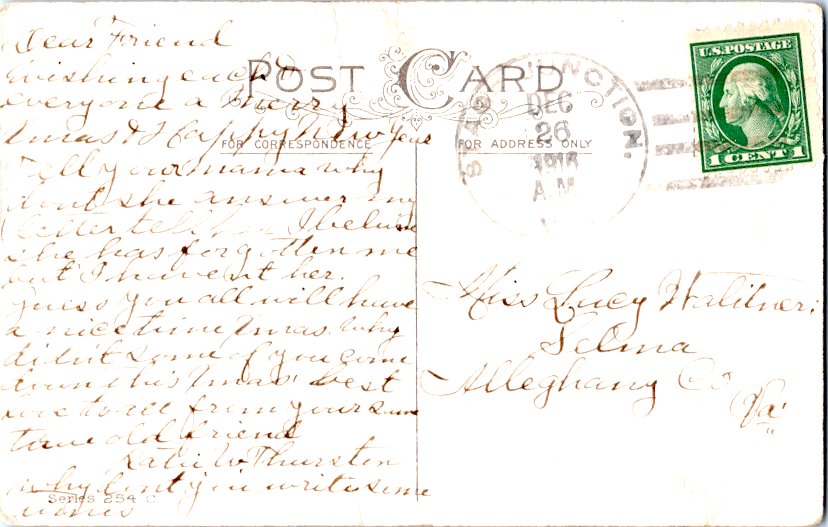 Dear Friend
Wishing each &
everyone a Merry
Xmas & Happy New Year
Tell your mama why
dont she answer my
letter tell her I believe
she has forgotten me
but I havent her.
Guess you all will have
a nice time Xmas. Why
didn't some of you come
down this Xmas best
love to all from your same
true old friend
Katie W Thurston
why dont you write some
times
POST CARD
FOR CORRESPONDENCE
FOR ADDRESS ONLY
JUNCTION.
DEC
26
1916
A.M
U.S. POSTAGE
1 CENT 1
Miss Lucy
Selma
Alleghany Co
Va
Series 254 C